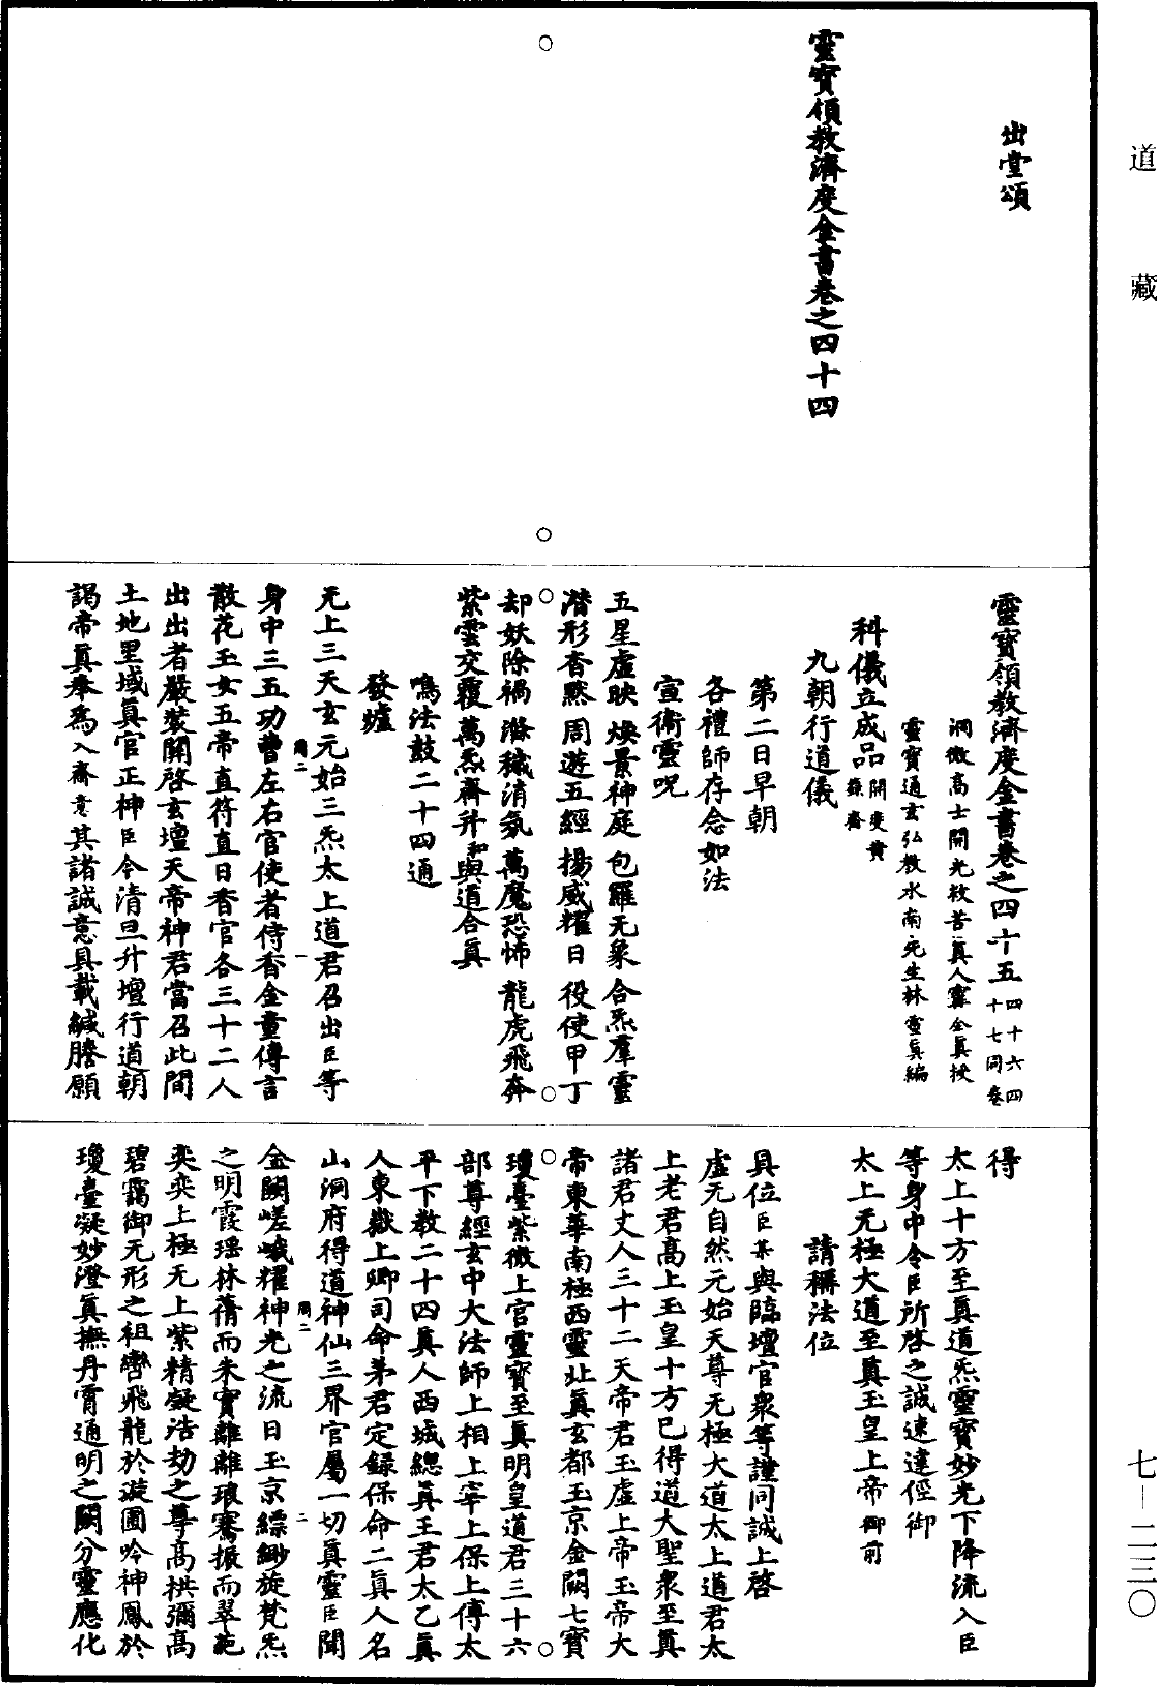 道藏
七—二三〇
出堂頌
靈寳領教濟度金書卷之四十四
靈寳領教濟度金書卷之四十五 四十六四十七同卷
洞微高士開光救苦眞人甯全眞授
靈寳通玄弘教水南先生林靈眞編
科儀立成品 開度黃籙齋
九朝行道儀
第二日早朝
各禮師存念如法
宣衛靈咒
五星虛映 煥景神庭 包羅无象 合炁羣靈
潛形杳黙 周遊五經 揚威耀日 役使甲丁
却妖除禍 滌穢消氛 萬魔恐怖 龍虎飛奔
紫雲交覆 萬炁齊升 和與道合眞
鳴法鼓二十四通
發爐
无上三天玄元始三炁太上道君召出臣等
身中三五功曹左右官使者侍香金童傳言
散花玉女五帝直符直日香官各三十二人
出出者嚴裝關啓玄壇天帝神君當召此間
土地里域眞官正神臣今清旦升壇行道朝
謁帝眞奉爲入齋意其諸誠意具載緘謄願
得
太上十方至眞道炁靈寳妙光下降流入臣
等身中令臣所啓之誠速達徑御
太上无極大道至眞玉皇上帝御前
請稱法位
具位臣某與臨壇官衆等謹同誠上啓
虛无自然元始天尊无極大道太上道君太
上老君髙上玉皇十方已得道大聖衆至眞
諸君丈人三十二天帝君玉虛上帝玉帝大
帝東華南極西靈北眞玄都玉京金闕七寳
瓊臺紫微上官靈寳至眞明皇道君三十六
部尊經玄中大法師上相上宰上保上傅太
平下教二十四眞人西城總眞王君太乙眞
人東嶽上卿司命茅君定録保命二眞人名
山洞府得道神仙三界官屬一切眞靈臣聞
金闕嵯峨耀神光之流日玉京縹緲旋梵炁
之明霞瑤林蒨而朱實離離琅騫振而翠葩
奕奕上極无上紫精凝浩劫之尊髙拱彌髙
碧靄御无形之祖轡飛龍於漩圃吟神鳳於
瓊臺凝妙澄眞撫丹霄通明之闕分靈應化